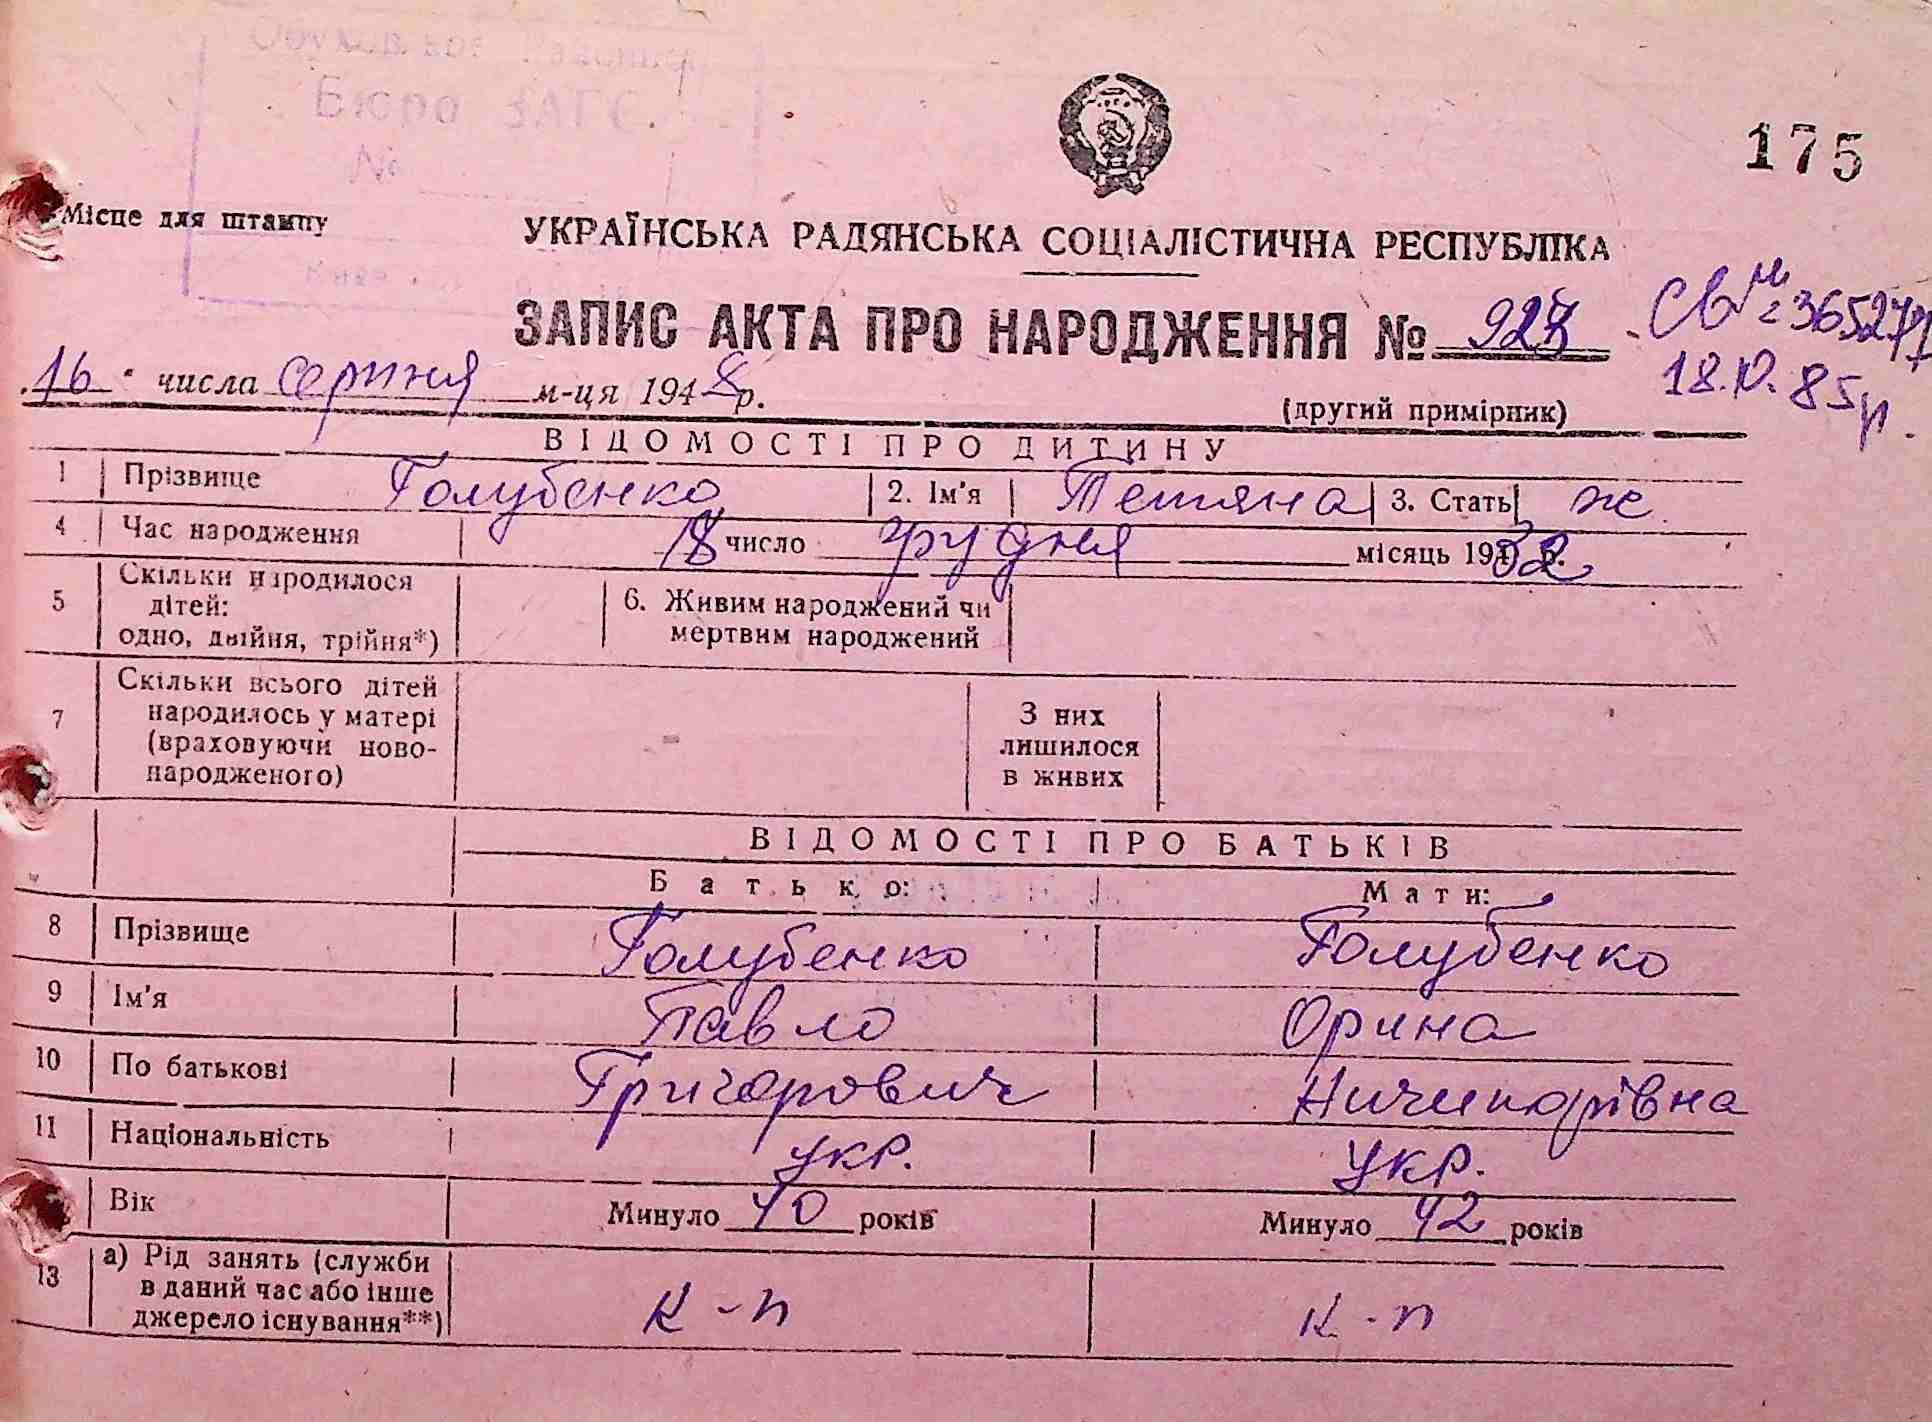 Бюро ЗАГС.
№
175
Місце для штампу
УКРАЇНСЬКА РАДЯНСЬКА СОЦІАЛІСТИЧНА РЕСПУБЛІКА
ЗАПИС АКТА ПРО НАРОДЖЕННЯ №
16 числа серпня м-ця 1948 р.
(другий примірник)
18.10.85р.
ВІДОМОСТІ ПРО ДИТИНУ
1 Прізвище Голубенко 2. Ім'я Тетяна 3. Стать ж.
4 Час народження 18 число грудня місяць 1932 р.
5 Скільки народилося дітей: одно, двійня, трійня*) 6. Живим народжений чи мертвим народжений
7 Скільки всього дітей народилось у матері (враховуючи ново-народженого) З них лишилося в живих
ВІДОМОСТІ ПРО БАТЬКІВ
Батько: Мати:
8 Прізвище Голубенко Голубенко
9 Ім'я Павло Орина
10 По батькові Григорович Ничипорівна
11 Національність укр. укр.
Вік Минуло 40 років Минуло 42 років
13 а) Рід занять (служби в даний час або інше джерело існування**) к-п к-п